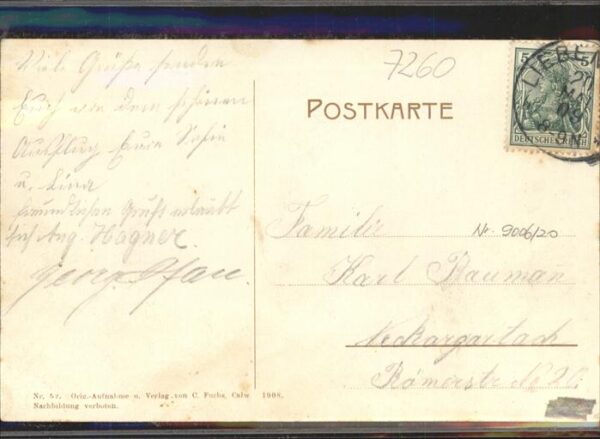 Viele Grüße senden
Euch von dem schönen
Ausflug Eure Sofie
u. Lina
freundlichen Gruß erlaubt
sich Aug. Hagner.
Georg Pfau.
7260
POSTKARTE
5
LIEBEN
DEUTSCHES REICH
Familie
Nr. 9006/20
Karl Bauman
Neckargartach
Römerstr. No 20
Nr. 57. Orig.-Aufnahme u. Verlag von C. Fuchs, Calw 1908.
Nachbildung verboten.